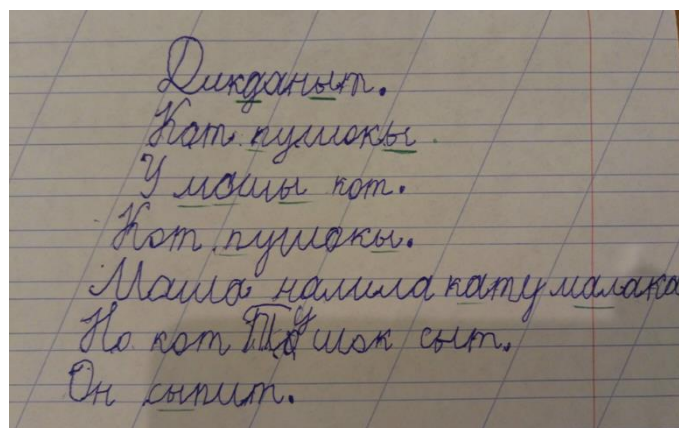 Дикданыт.
Кат пушокы
У машы кот.
Кот пушокы.
Маша налила кату малака
Но кот Пушок сыт.
Он сыпит.